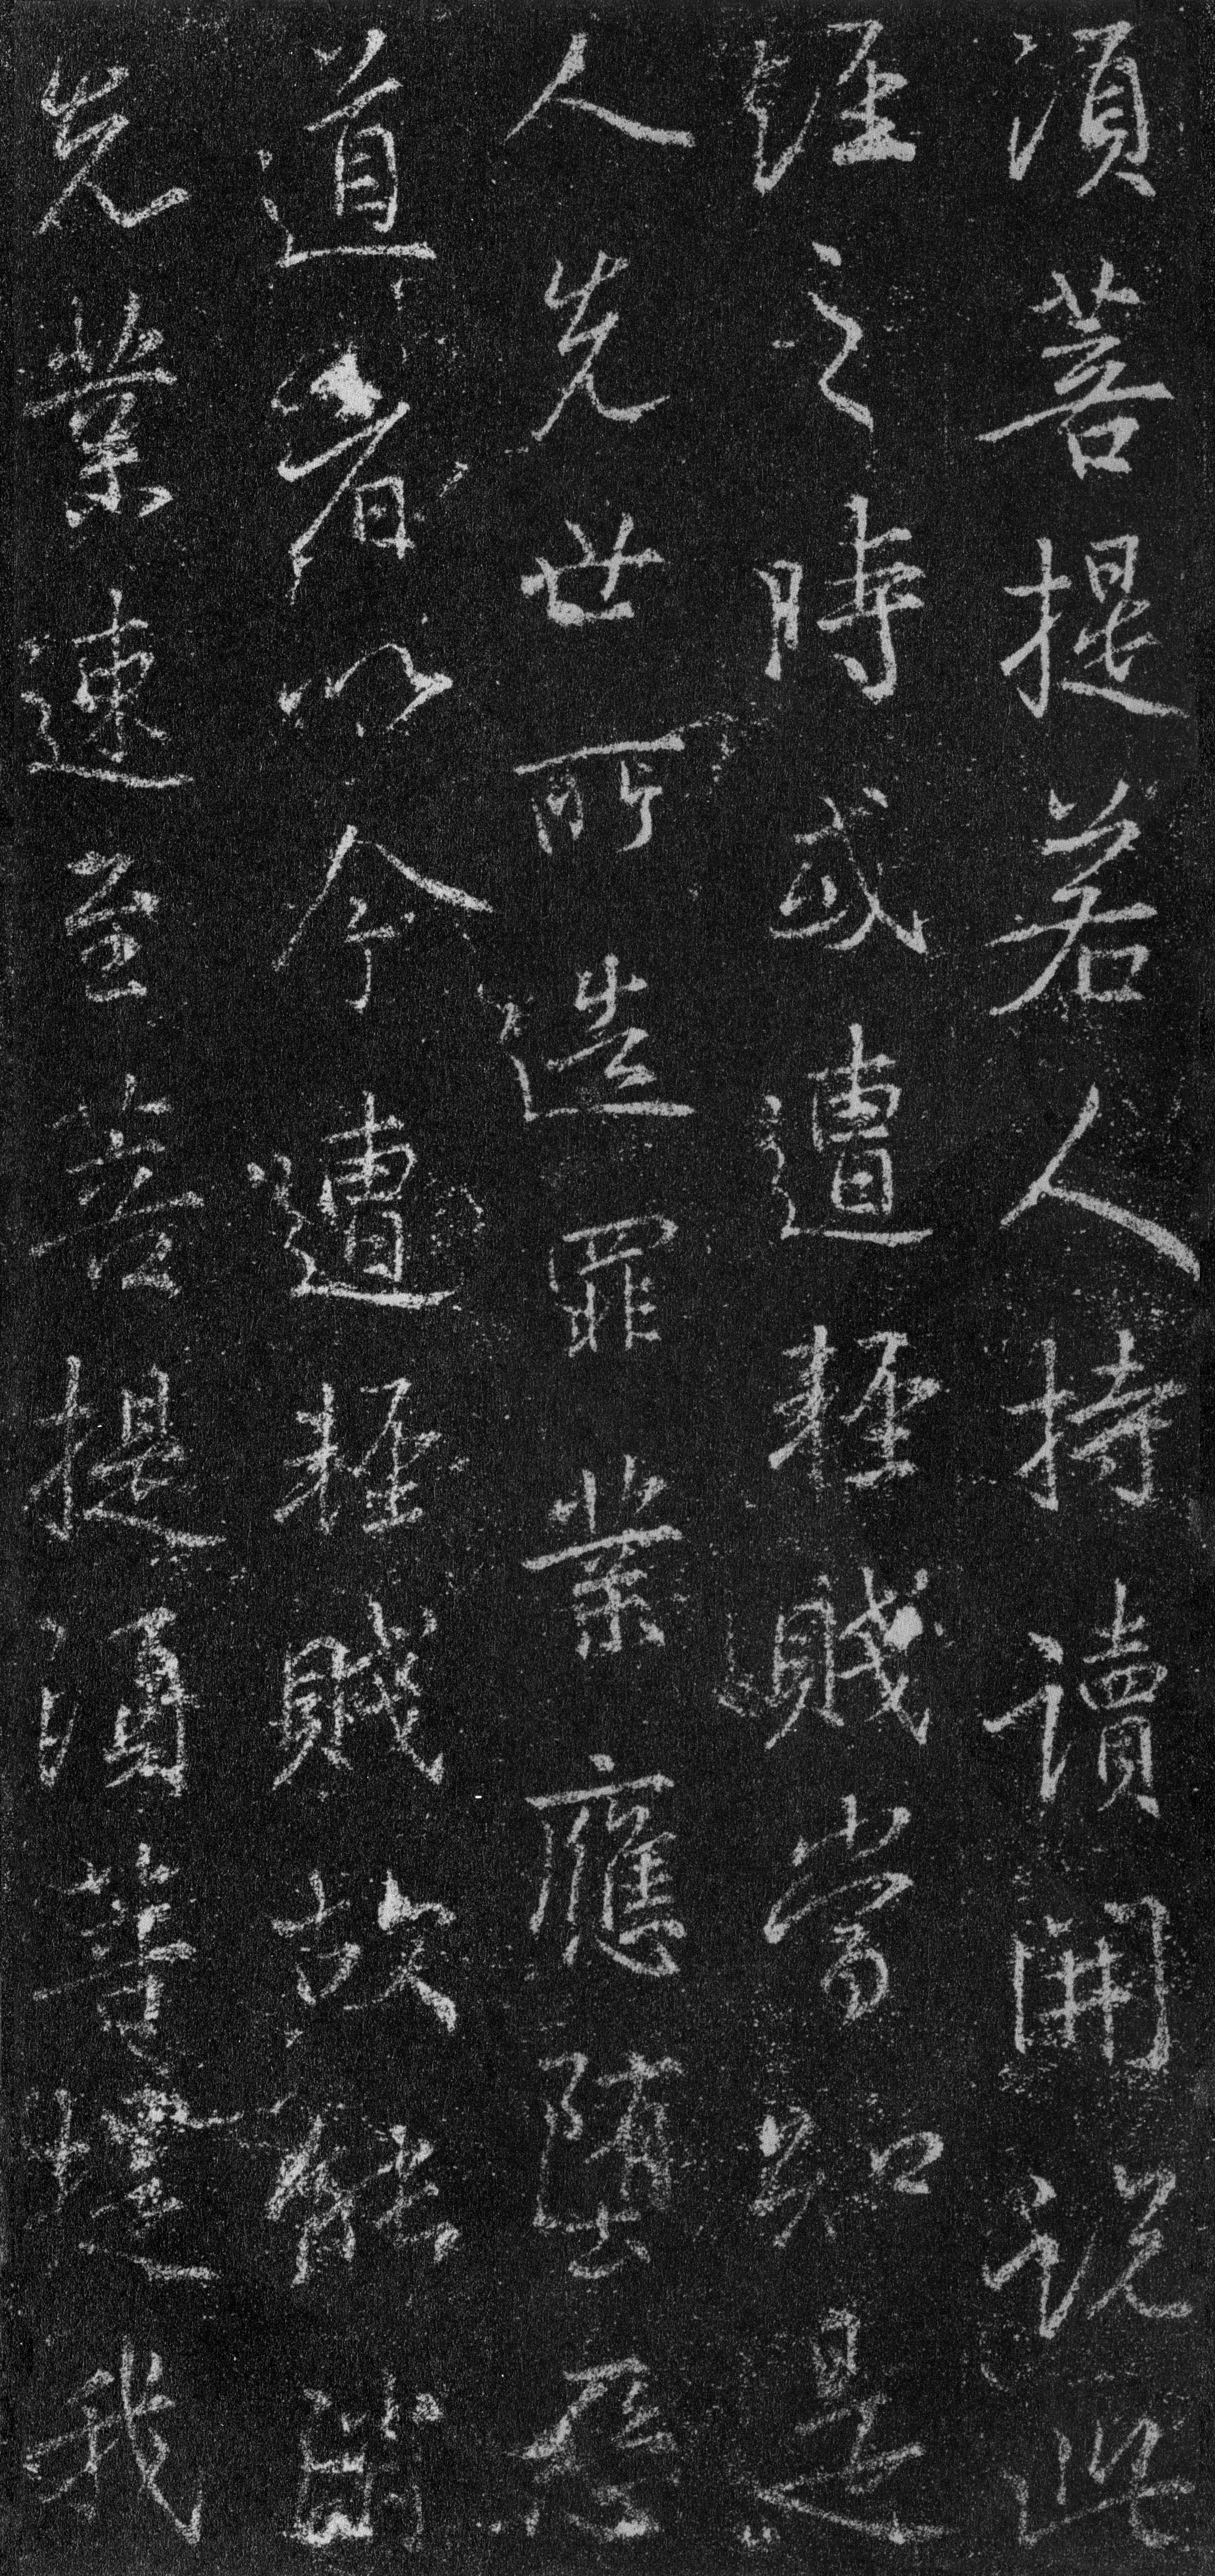 須菩提若人持讀開説此
經之時或遭輕賤當知是
人先世所造罪業應墮惡
道者以今遭輕賤故能消
先業速至菩提須菩提我